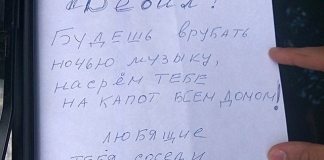 Дебил!
Будешь врубать
ночью музыку,
насрём тебе
на капот всем домом!
любящие
тебя соседи